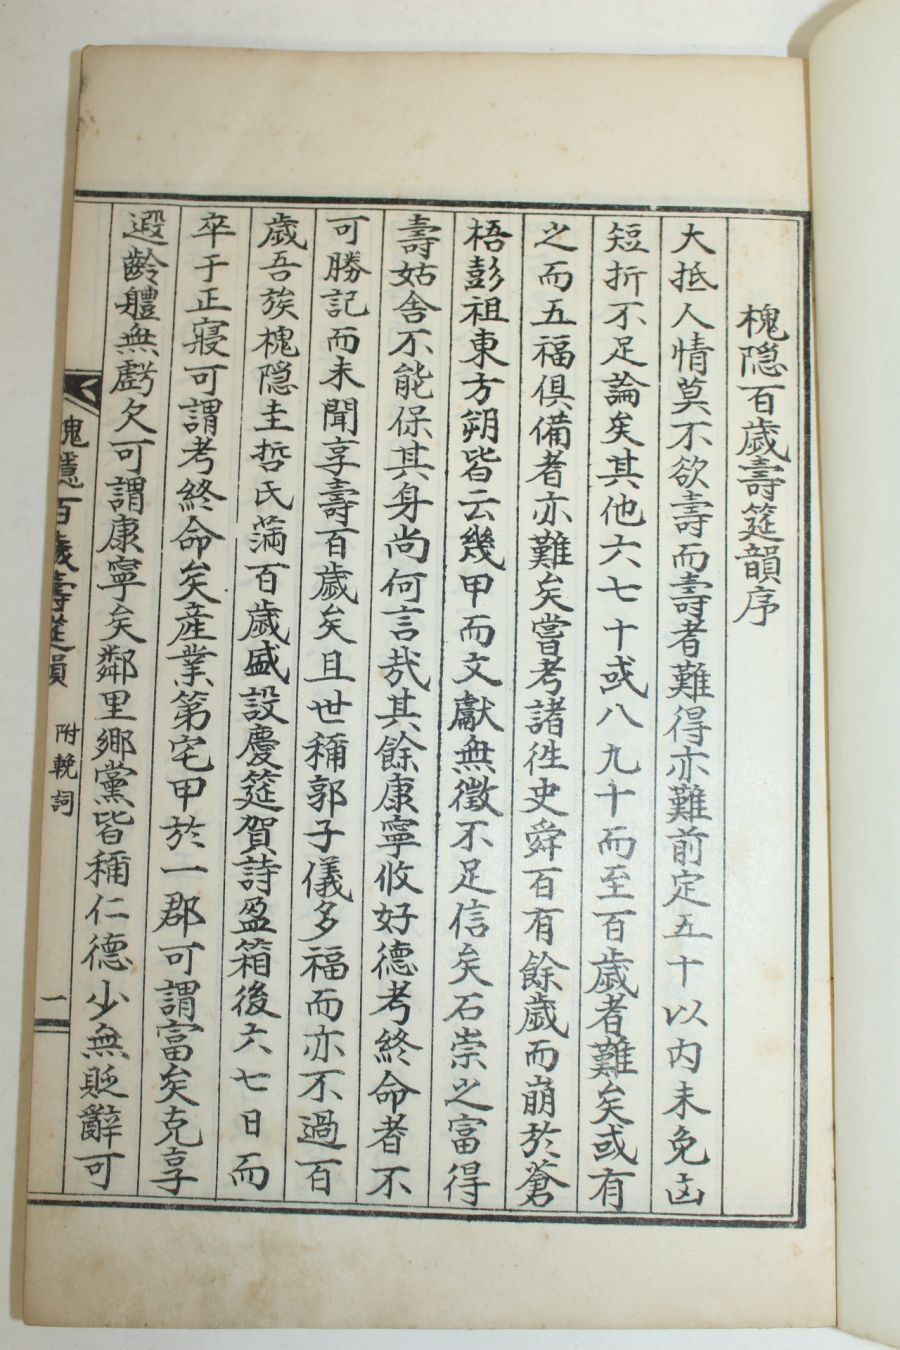 槐隐百歳壽筵韻序
大抵人情莫不欲壽而壽者難得亦難前定五十以内未免凶
短折不足論矣其他六七十或八九十而至百歳者難矣或有
之而五福俱備者亦難矣嘗考諸徃史舜百有餘歳而崩於蒼
梧彭祖東方朔皆云幾甲而文獻無徵不足信矣石崇之富得
壽姑舍不能保其身尚何言哉其餘康寧攸好德考終命者不
可勝記而未聞享壽百歳矣且世稱郭子儀多福而亦不過百
歳吾族槐隐圭哲氏滿百歳盛設慶筵賀詩盈箱後六七日而
卒于正寢可謂考終命矣産業第宅甲於一郡可謂富矣克享
遐齡軆無虧欠可謂康寧矣鄰里鄉黨皆稱仁德少無貶辭可
槐隱百歳壽筵韻 附輓詞 一